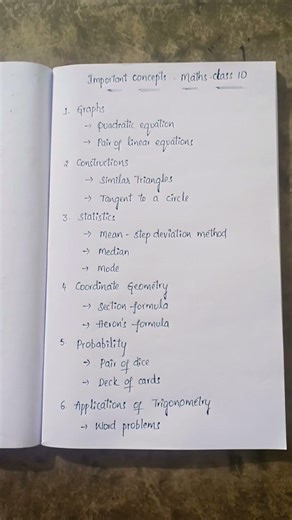 Important concepts - Maths class 10
1. Graphs
→ Quadratic equation
→ Pair of linear equations
2 Constructions
→ Similar Triangles
→ Tangent to a circle
3 Statistics
→ Mean - Step deviation method
→ Median
→ Mode
4 Coordinate Geometry
→ Section-formula
→ Heron's-formula
5 Probability
→ Pair of dice
→ Deck of cards
6 Applications of Trigonometry
→ Word problems